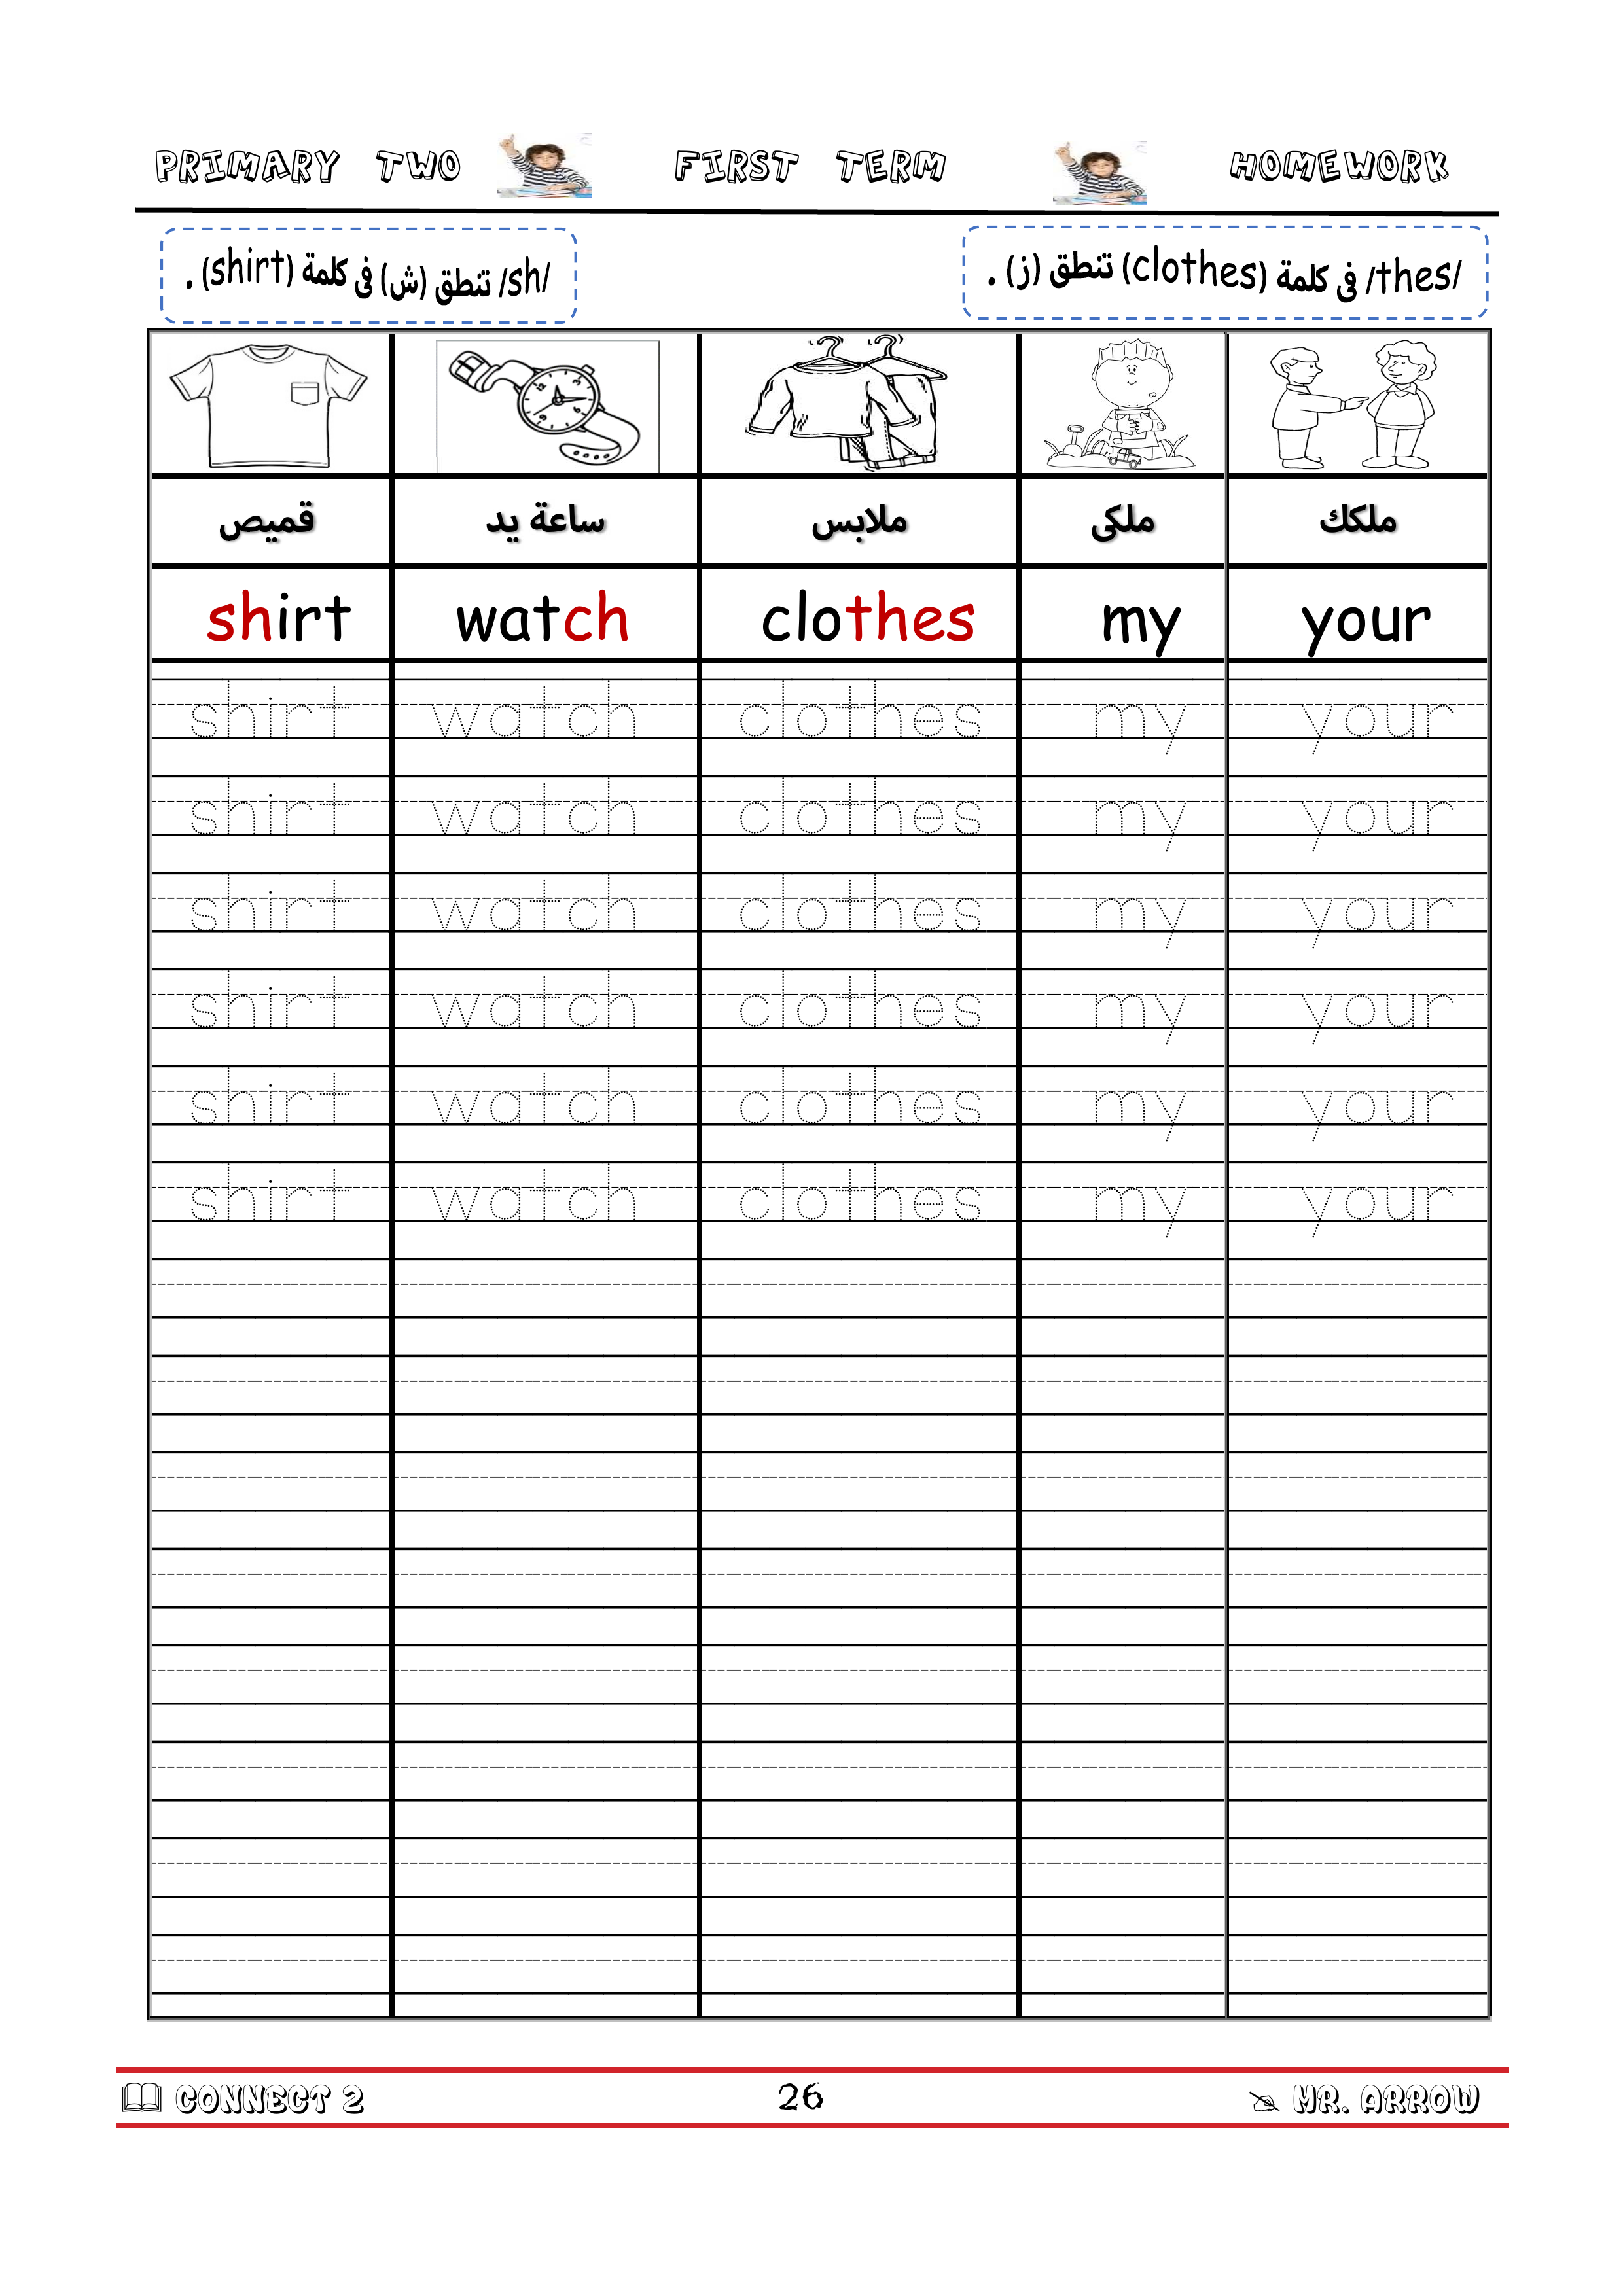 PRIMARY TWO FIRST TERM HOMEWORK
/sh/ تنطق (ش) فى كلمة (shirt) .
/thes/ فى كلمة (clothes) تنطق (ز) .
قميص ساعة يد ملابس ملكى ملكك
shirt watch clothes my your
shirt watch clothes my your
shirt watch clothes my your
shirt watch clothes my your
shirt watch clothes my your
shirt watch clothes my your
shirt watch clothes my your
CONNECT 2 26 MR. ARROW